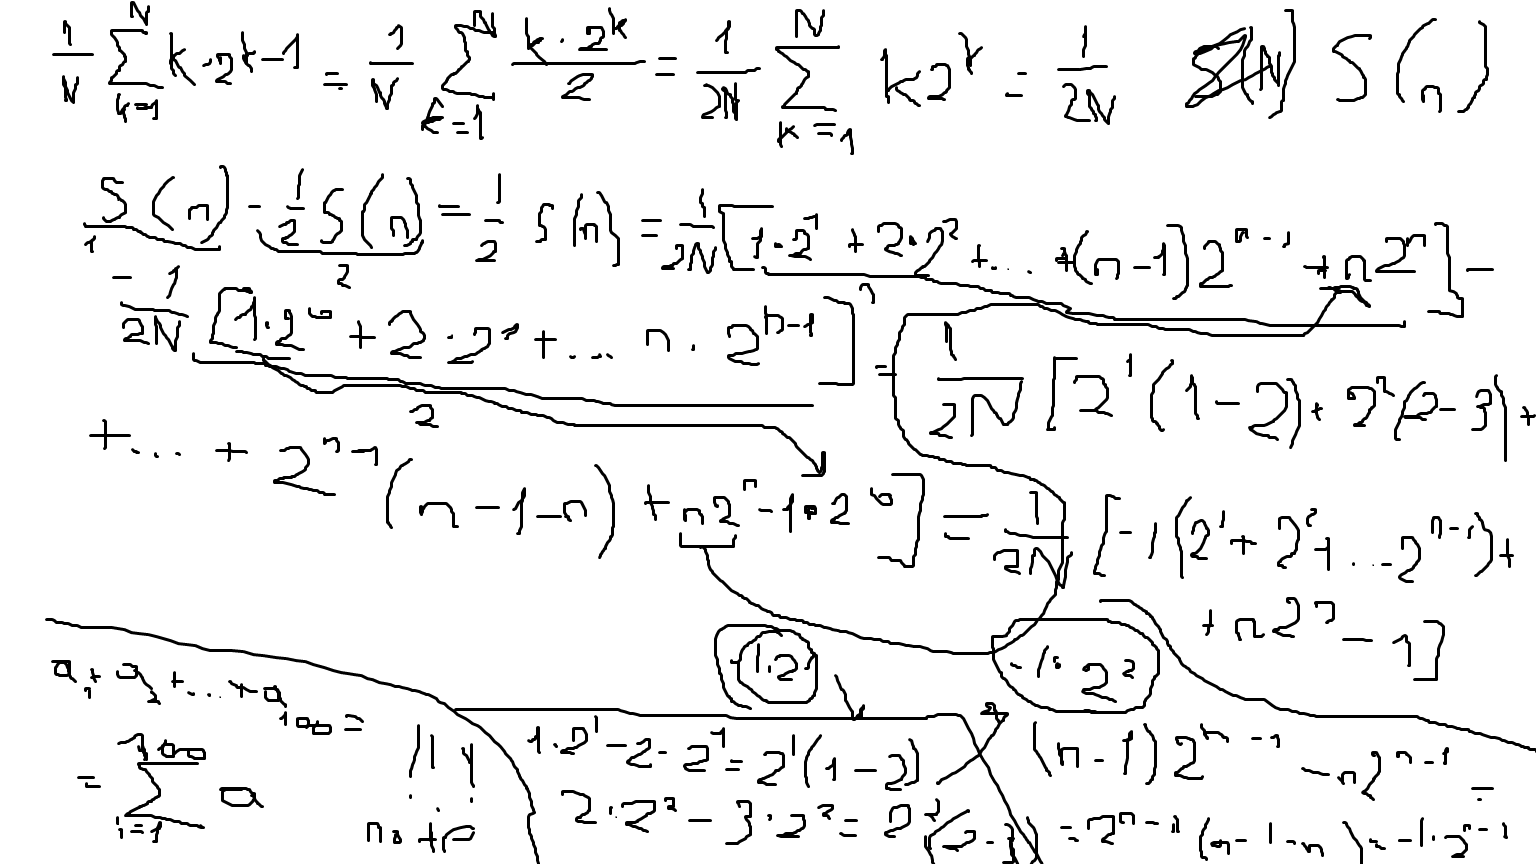 1/N ∑_{k=1}^{N} k·2^{k-1} = 1/N ∑_{k=1}^{N} k·2^k/2 = 1/2N ∑_{k=1}^{N} k2^k = 1/2N S(n)
S(n) - 1/2 S(n) = 1/2 S(n) = 1/2N [1·2^1 + 2·2^2 + ... +(n-1)2^{n-1} + n2^n] -
1 2
- 1/2N [1·2^0 + 2·2^1 + ... n·2^{n-1}] = 1/2N [2^1(1-2) + 2^2(2-3) +
2
+ ... + 2^{n-1}(n-1-n) + n2^n - 1·2^0] = 1/2N [-1(2^1 + 2^2 + ... 2^{n-1}) +
+ n2^n - 1]
-1·2 -1·2^2
a_1 + a_2 + ... + a_{100} =
= ∑_{i=1}^{100} a
1·2^1 - 2·2^1 = 2^1(1-2)
2·2^2 - 3·2^2 = 2^2(2-3)
(n-1)2^{n-1} - n2^{n-1} =
= 2^{n-1}(n-1-n) = -1·2^{n-1}